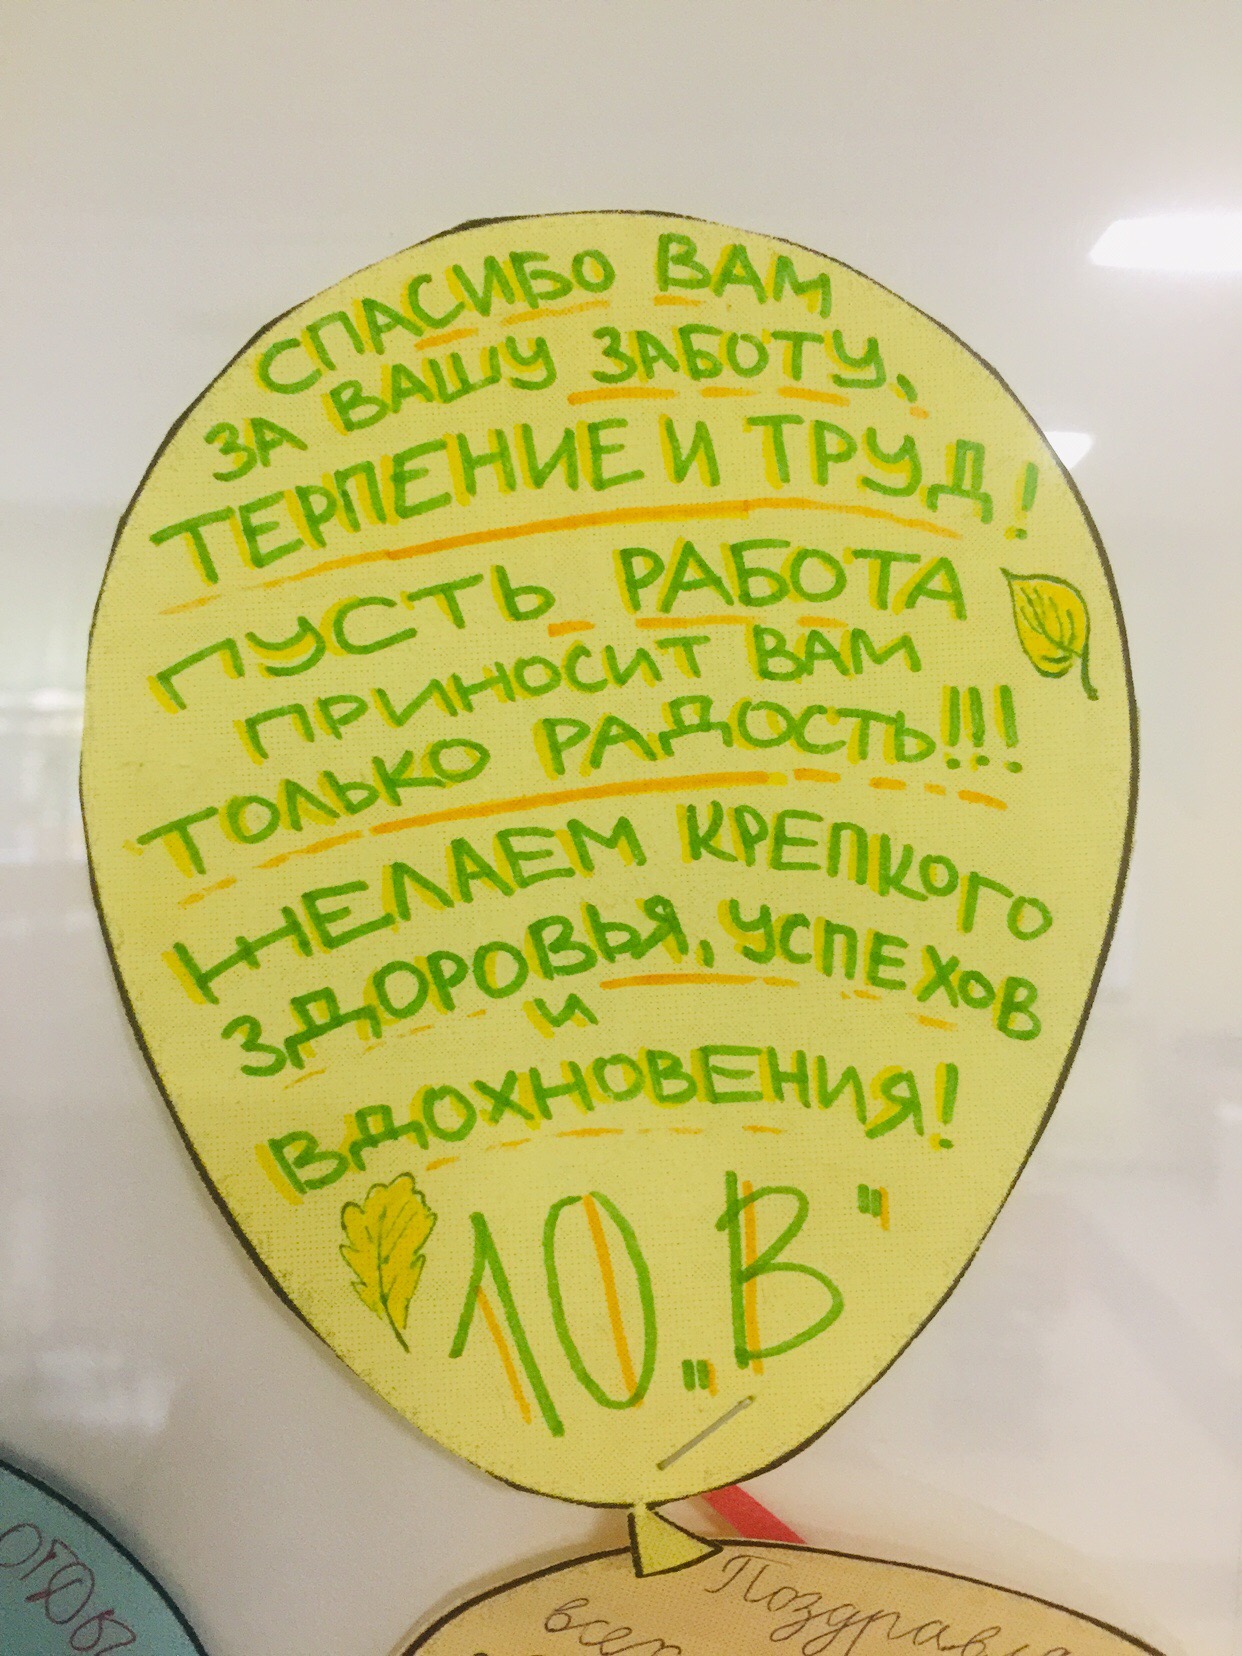 СПАСИБО ВАМ
ЗА ВАШУ ЗАБОТУ,
ТЕРПЕНИЕ И ТРУД!
ПУСТЬ РАБОТА
ПРИНОСИТ ВАМ
ТОЛЬКО РАДОСТЬ!!!
ЖЕЛАЕМ КРЕПКОГО
ЗДОРОВЬЯ, УСПЕХОВ
И
ВДОХНОВЕНИЯ!
10 „В"